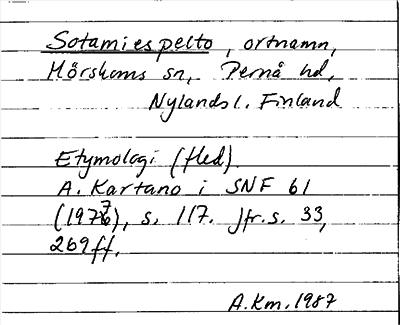 Sotamiespelto, ortnamn,
Mörskoms sn, Pernå hd,
Nylands l. Finland
Etymologi (fled).
A. Kartano i SNF 61
(1977), s. 117. Jfr. s. 33,
269 ff.
A.Km. 1987